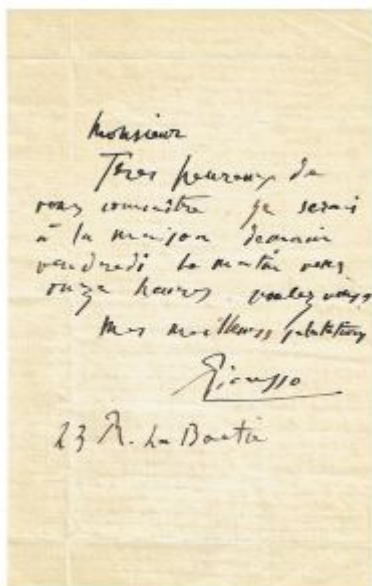 Monsieur
Tres heureux de
vous connaitre je serais
à la maison demain
vendredi le matin vers
onze heures voulez vous
mes meilleures salutations
Picasso
23 R. La Boetie